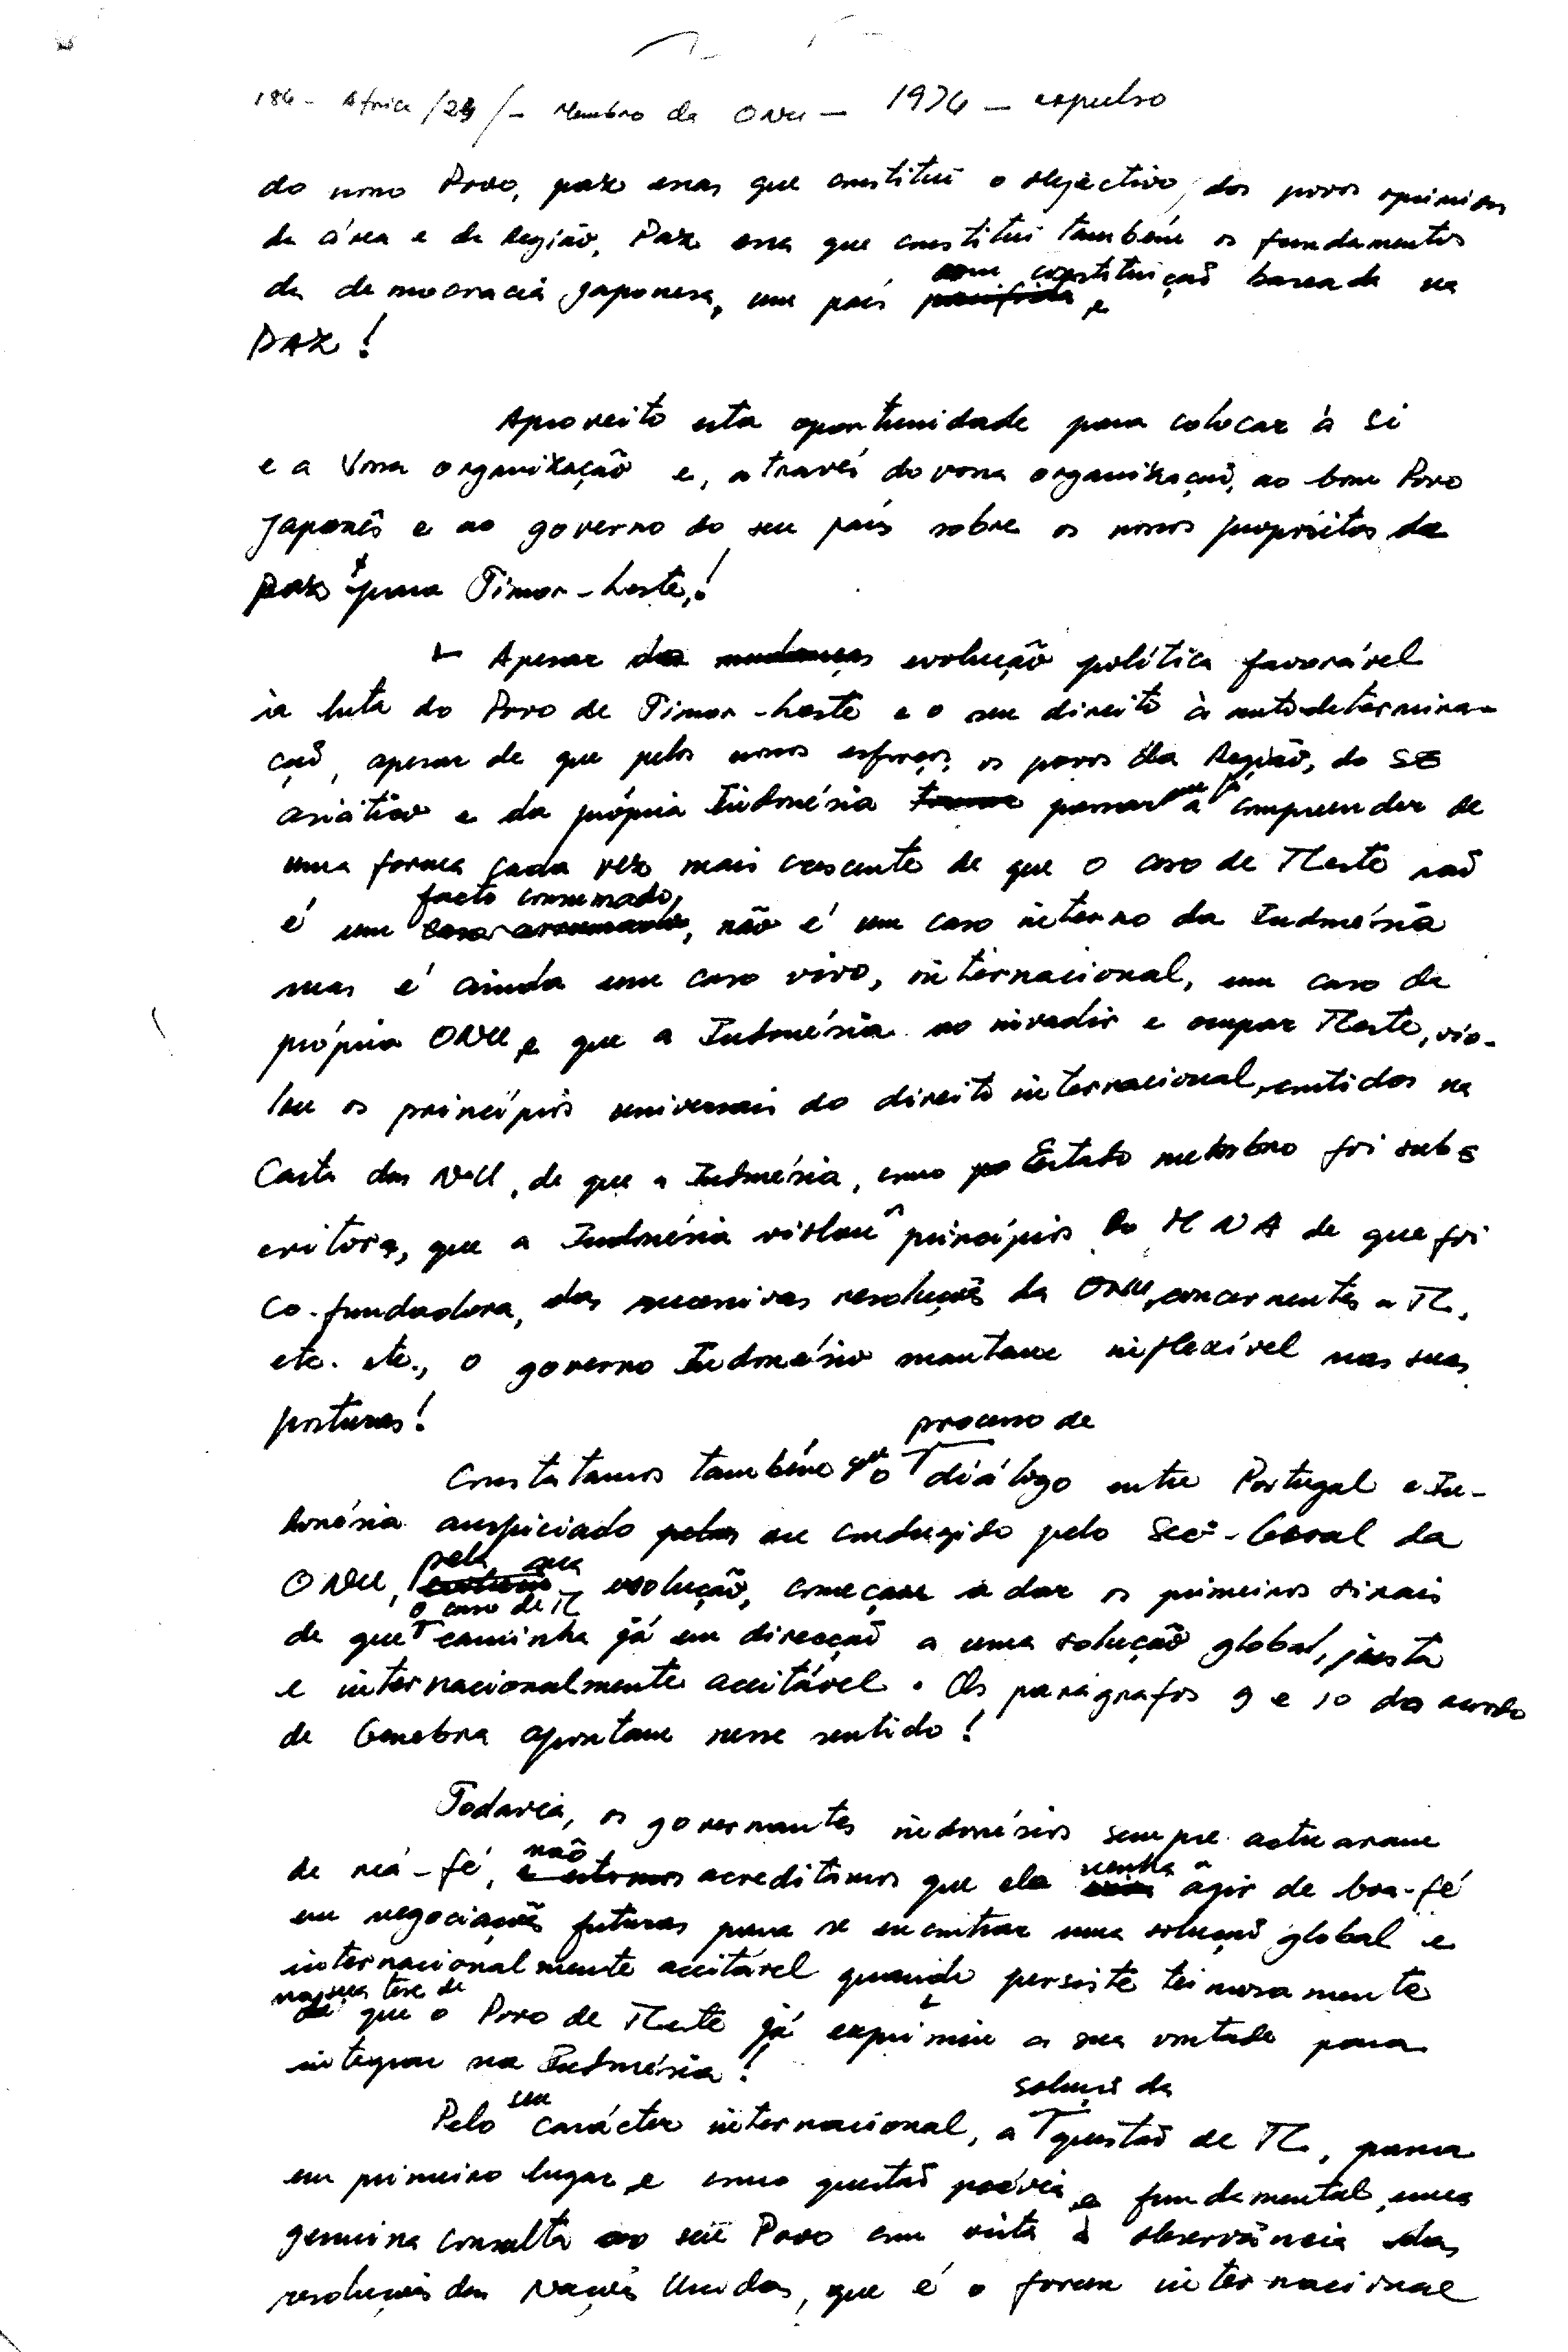 186 - Africa /24/ - Membro da ONU - 1974 - expulso
do nosso Povo, paz essas que constitui o objectivo, dos povos
da área e da Região, Paz essa que constitui também os fundamentos
da democracia japonesa, um país com constituição baseada na
PAZ!
Aproveito esta oportunidade para colocar à si
e a Vossa organização e, através da vossa organização, ao bom Povo
Japonês e ao governo do seu país sobre os nossos propósitos de
paz para Timor-Leste!
Apesar da mudanças evolução política favorável
à luta do Povo de Timor-Leste e o seu direito à autodetermina-
ção, apesar de que pelos nossos esforços, os povos da Região, do SE
asiático e da própria Indonésia passaram a compreender de
uma forma cada vez mais crescente de que o caso de TLeste não
é um facto consumado, não é um caso interno da Indonésia
mas é ainda um caso vivo, internacional, um caso da
própria ONU e que a Indonésia ao invadir e ocupar TLeste, vio-
lou os princípios universais do direito internacional, contidos na
Carta das NU, de que a Indonésia, como Estado membro foi subs
critora, que a Indonésia violou os princípios do MNA de que foi
co-fundadora, das sucessivas resoluções da ONU, concernentes a TL,
etc. etc., o governo Indonésio mantem inflexível nas suas
posturas!
Constatamos também que o processo de diálogo entre Portugal e In-
donésia auspiciado ou conduzido pelo Sec-Geral da
ONU, pela sua evolução, começam a dar os primeiros sinais
de que o caso de TL caminha já em direcção a uma solução global, justa
e internacionalmente aceitável. Os parágrafos 9 e 10 do acordo
de Genebra apontam nesse sentido!
Todavia, os governantes indonésios sempre actuaram
de má-fé, não acreditamos que ela venha a agir de boa-fé
em negociações futuras para se encontrar uma solução global e
internacionalmente aceitável quando persiste teimosamente
na sua tese de que o Povo de TLeste já exprimiu a sua vontade para
integrar na Indonésia!
Pelo seu carácter internacional, a solução da questão de TL, passa
em primeiro lugar e como questão prévia e fundamental, uma
genuina consulta ao seu Povo com vista à observância das
resoluções das Nações Unidas, que é o forum internacional